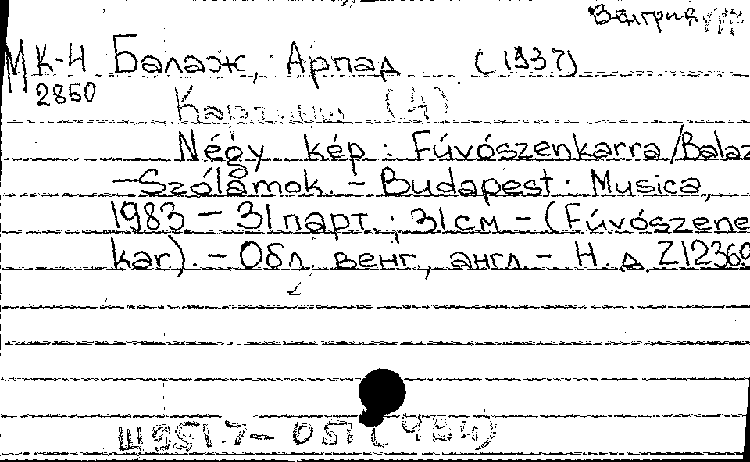 Венгрия
МК-Н Балаж, Арпад (1937)
2850
Картины (4)
Négy kép : Fúvószenkarra /Balaz
- Szólamok. - Budapest : Musica,
1983 - 31 парт. ; 31 см - (Fúvószene
kar). - Обл. венг., англ. - Н. д. Z12369
Щ951.7-051(4Вн)